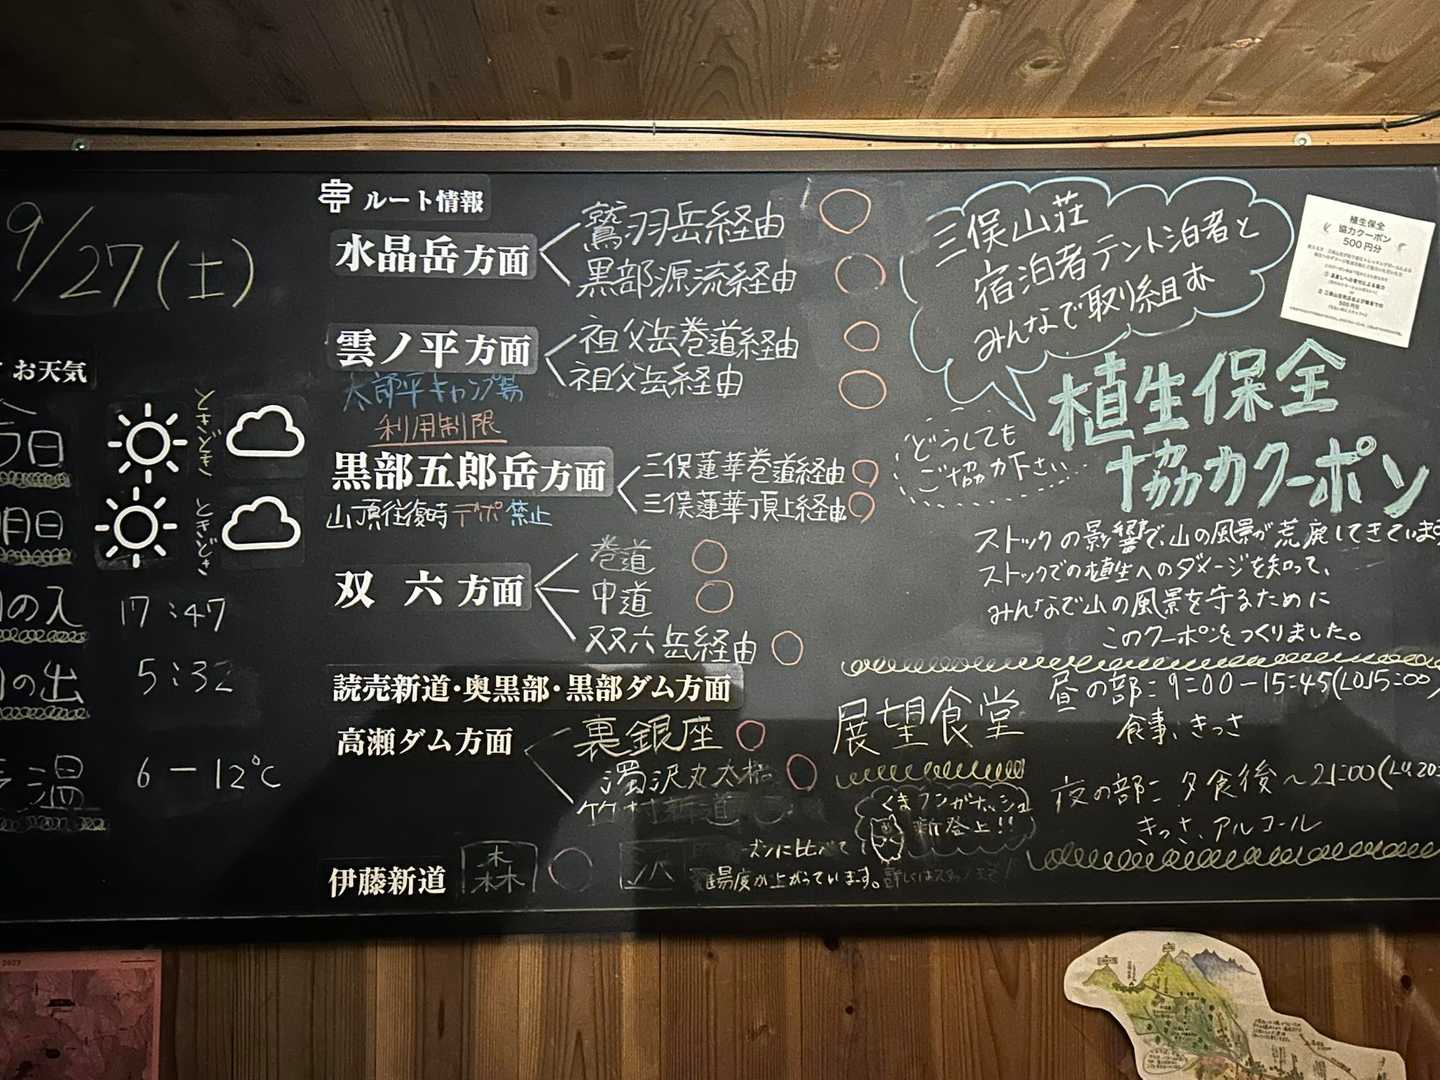 9/27(土)
お天気
今日 ときどき
明日 ときどき
日の入 17:47
日の出 5:32
気温 6-12℃
ルート情報
水晶岳方面
鷲羽岳経由 ○
黒部源流経由 ○
雲ノ平方面
祖父岳巻道経由 ○
祖父岳経由 ○
太郎平キャンプ場
利用制限
黒部五郎岳方面
三俣蓮華巻道経由 ○
三俣蓮華頂上経由 ○
山頂往復時デポ禁止
双六方面
巻道 ○
中道 ○
双六岳経由 ○
読売新道・奥黒部・黒部ダム方面
高瀬ダム方面
裏銀座 ○
濁沢丸太橋 ○
竹村新道 ○
伊藤新道
森 ○
沢
ズンに比べて
難易度が上がっています。
三俣山荘
宿泊者テント泊者と
みんなで取り組む
植生保全
協力クーポン
500円分
植生保全
協力クーポン
どうしても
ご協力下さい
ストックの影響で、山の風景が荒廃してきています
ストックでの植生へのダメージを知って、
みんなで山の風景を守るために
このクーポンをつくりました。
展望食堂
昼の部:9:00-15:45(LO15:00)
食事、きっさ
夜の部:夕食後~21:00(LO.20:
きっさ、アルコール
くまフンガナッシュ
新登場!!